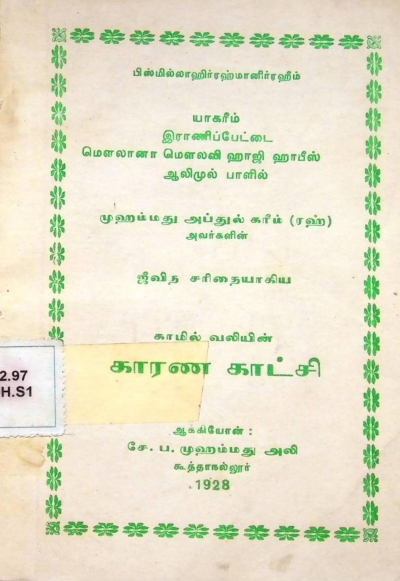 பிஸ்மில்லாஹிர்ரஹ்மானிர்ரஹீம்
யாகரீம்
இராணிப்பேட்டை
மௌலானா மௌலவி ஹாஜி ஹாபீஸ்
ஆலிமுல் பாளில்
முஹம்மது அப்துல் கரீம் (ரஹ்)
அவர்களின்
ஜீவித சரிதையாகிய
காமில் வலியின்
காரண காட்சி
2.97
H.S1
ஆக்கியோன் :
சே. ப. முஹம்மது அலி
கூத்தாநல்லூர்
1928